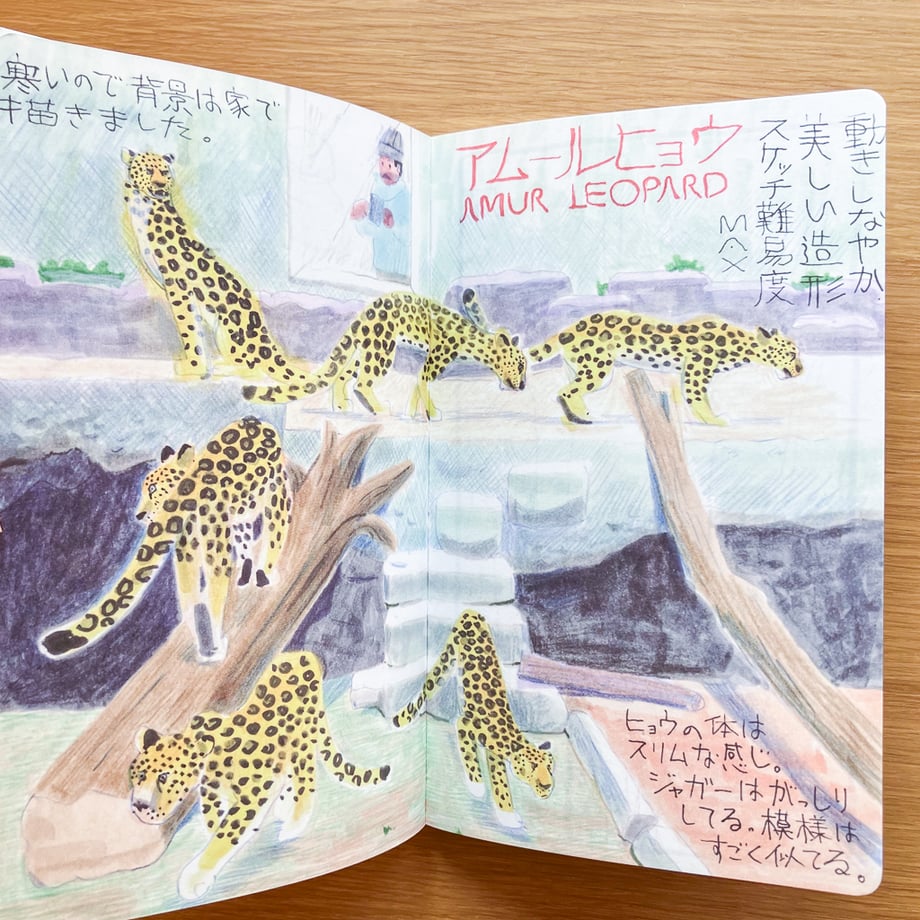 寒いので背景は家で
描きました。
アムールヒョウ
AMUR LEOPARD
動きしなやか
美しい造形
スケッチ難易度
MAX
ヒョウの体は
スリムな感じ。
ジャガーはがっしり
してる。模様は
すごく似てる。